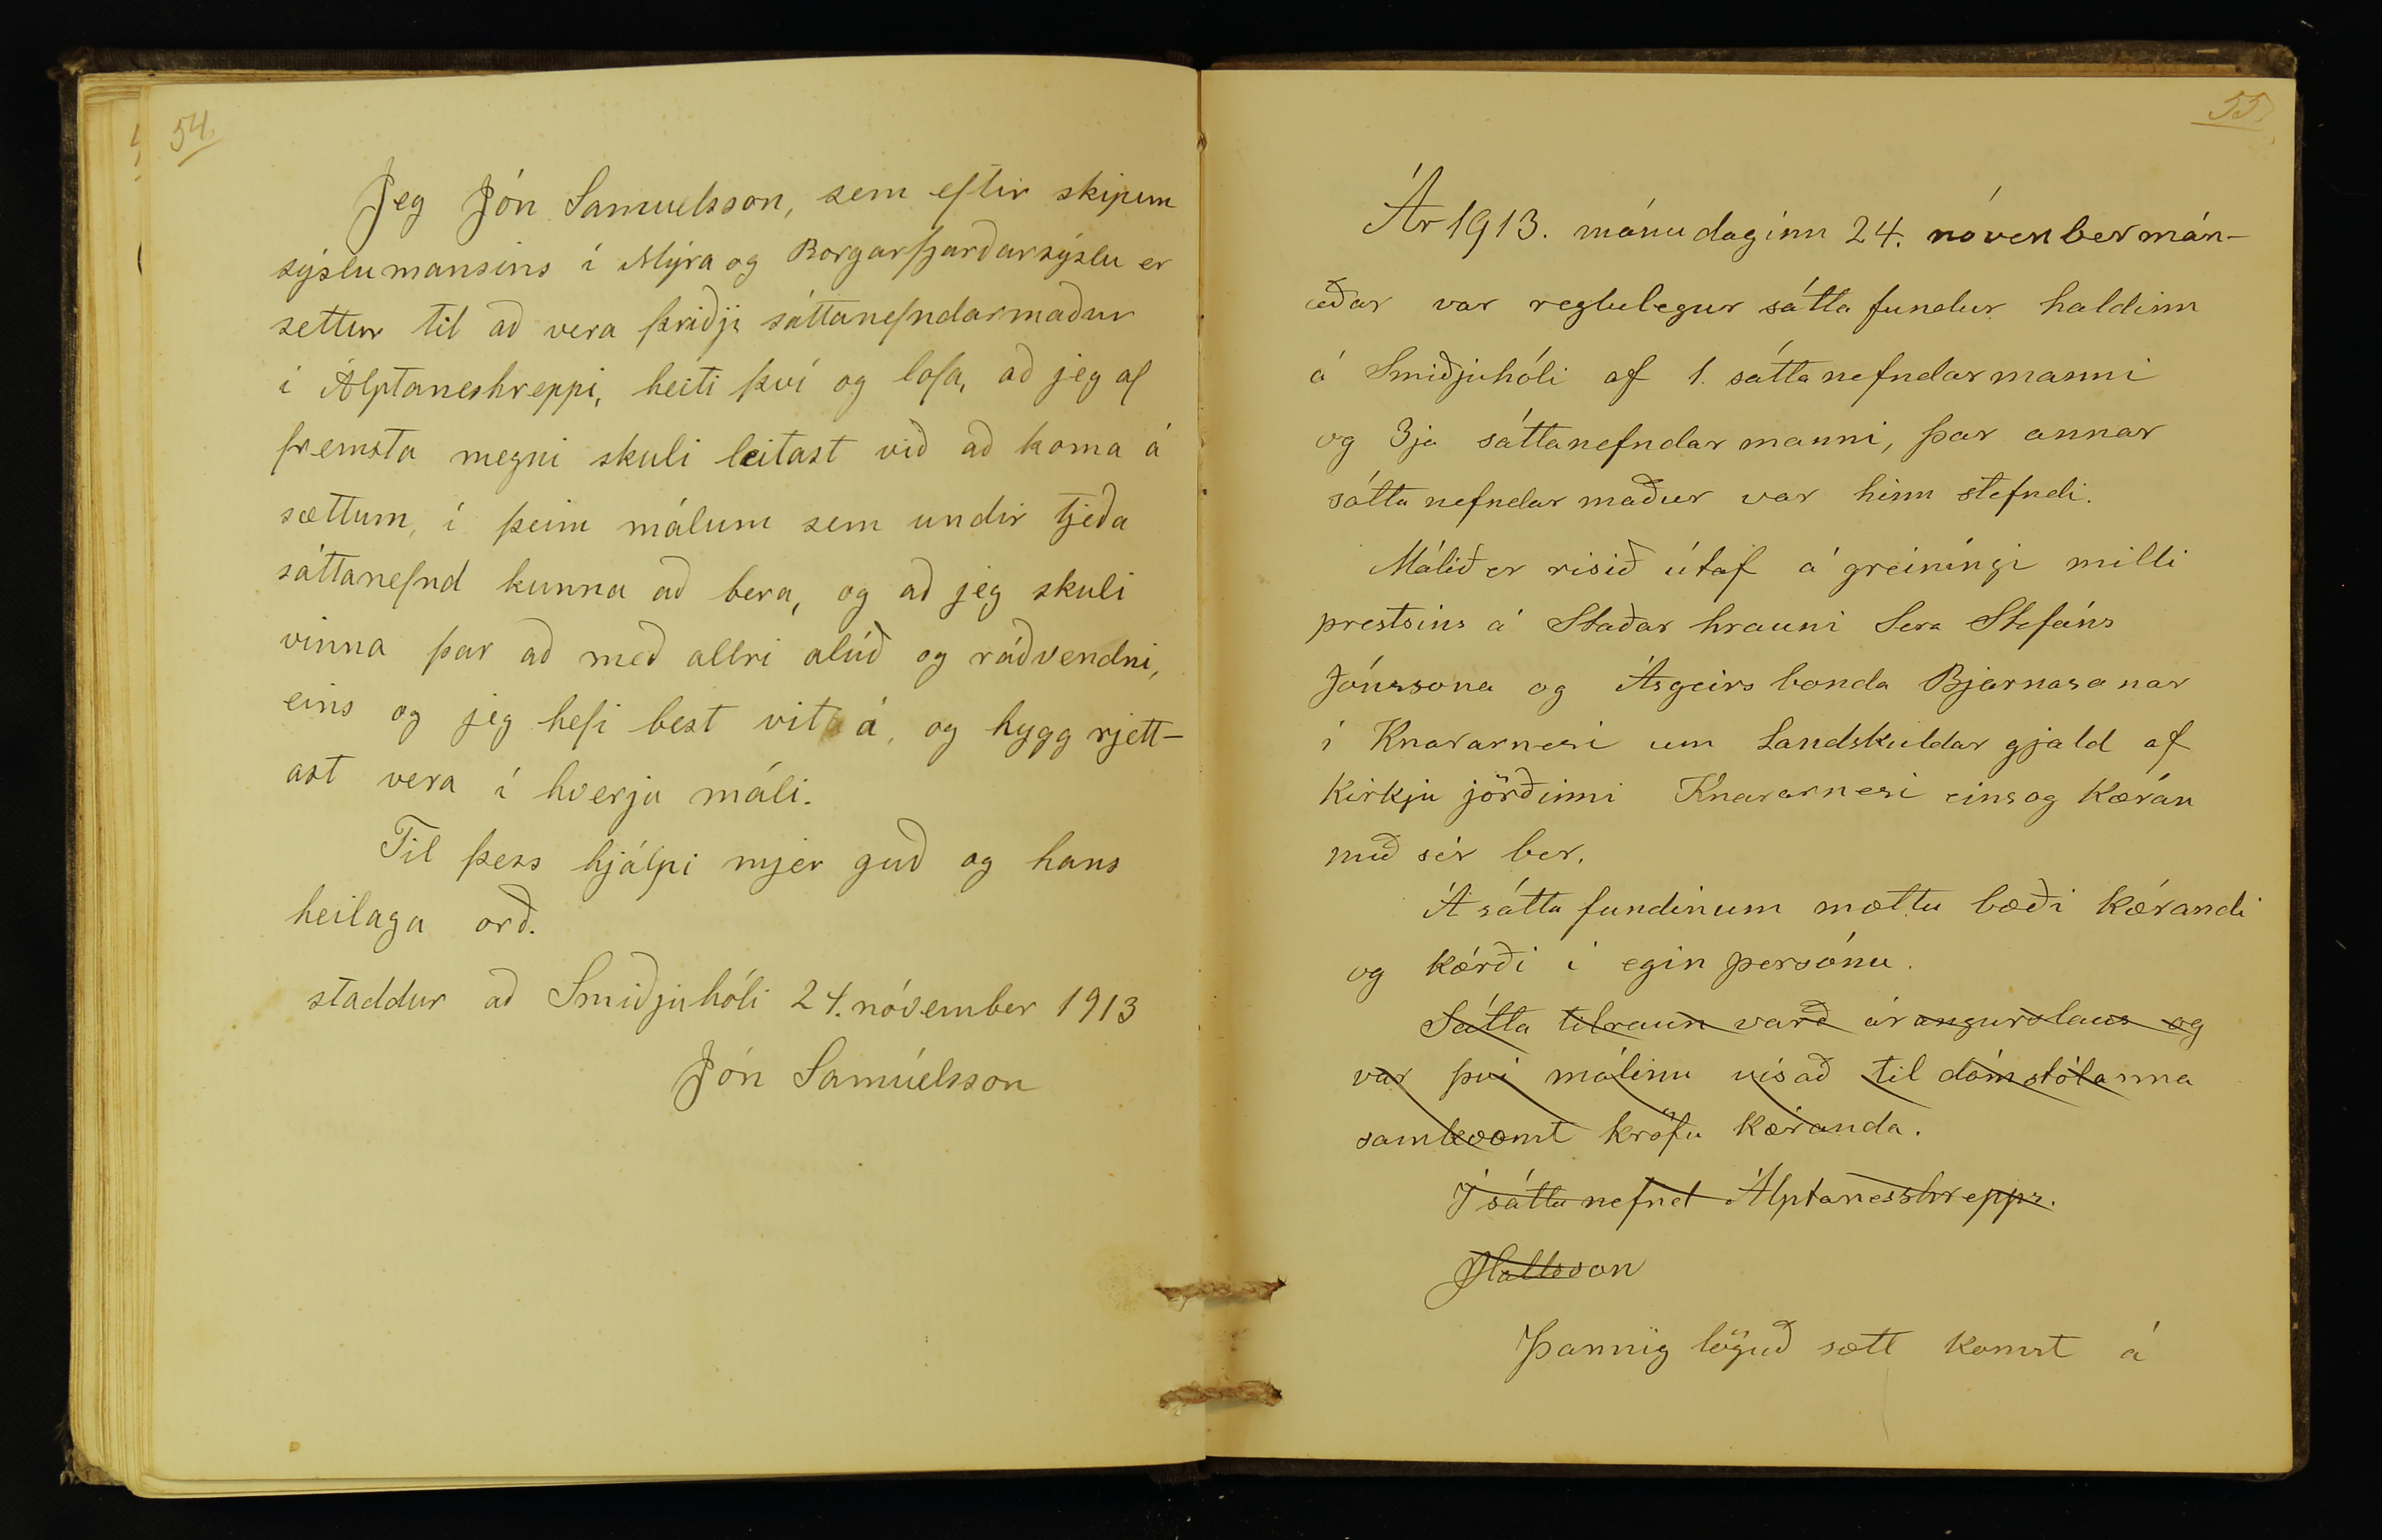 54.
Jeg Jón Samuelsson, sem eftir skipun
sýslumansins í Mýra og Borgarfjarðarsýslu er
settur til að vera þriðji sáttanefndarmaður
í Álptaneshreppi, heiti því og lofa, að jeg af
fremsta megni skuli leitast við að koma á
sættum, í þeim málum sem undir tjeða
sáttanefnd kunna að bera, og að jeg skuli
vinna þar að með allri alúð og ráðvendni,
eins og jeg hefi best vit á, og hygg rjett-
ast vera í hverju máli.
Til þess hjálpi mjer guð og hans
heilaga orð.
staddur að Smiðjuhóli 24. nóvember 1913
Jón Samúelsson
55.
Ár 1913. mánudaginn 24. nóvenbermán-
aðar var reglulegur sátta fundur haldinn
á Smiðjuhóli af 1. sáttanefndarmanni
og 3ja sáttanefndarmanni, þar annar
sáttanefndarmaður var hinn stefndi.
Málið er risið útaf ágreiníngi milli
prestsins á Staðarhrauni Sera Stefáns
Jónssona og Ásgeirs bonda Bjarnasonar
í Knararnesi um Landskuldar gjald af
Kirkju jörðinni Knararnesi eins og Kæran
með sér ber.
Á sátta fundinum mættu bæði Kærandi
og Kærði í egin persónu.
Sátta tilraun varð árangurslaus og
var því málinu vísað til dómstólanna
samkvæmt kröfu Kæranda.
Í sáttanefnd Álptanesshrepps.
JHallsson
Þannig löguð sætt komst á